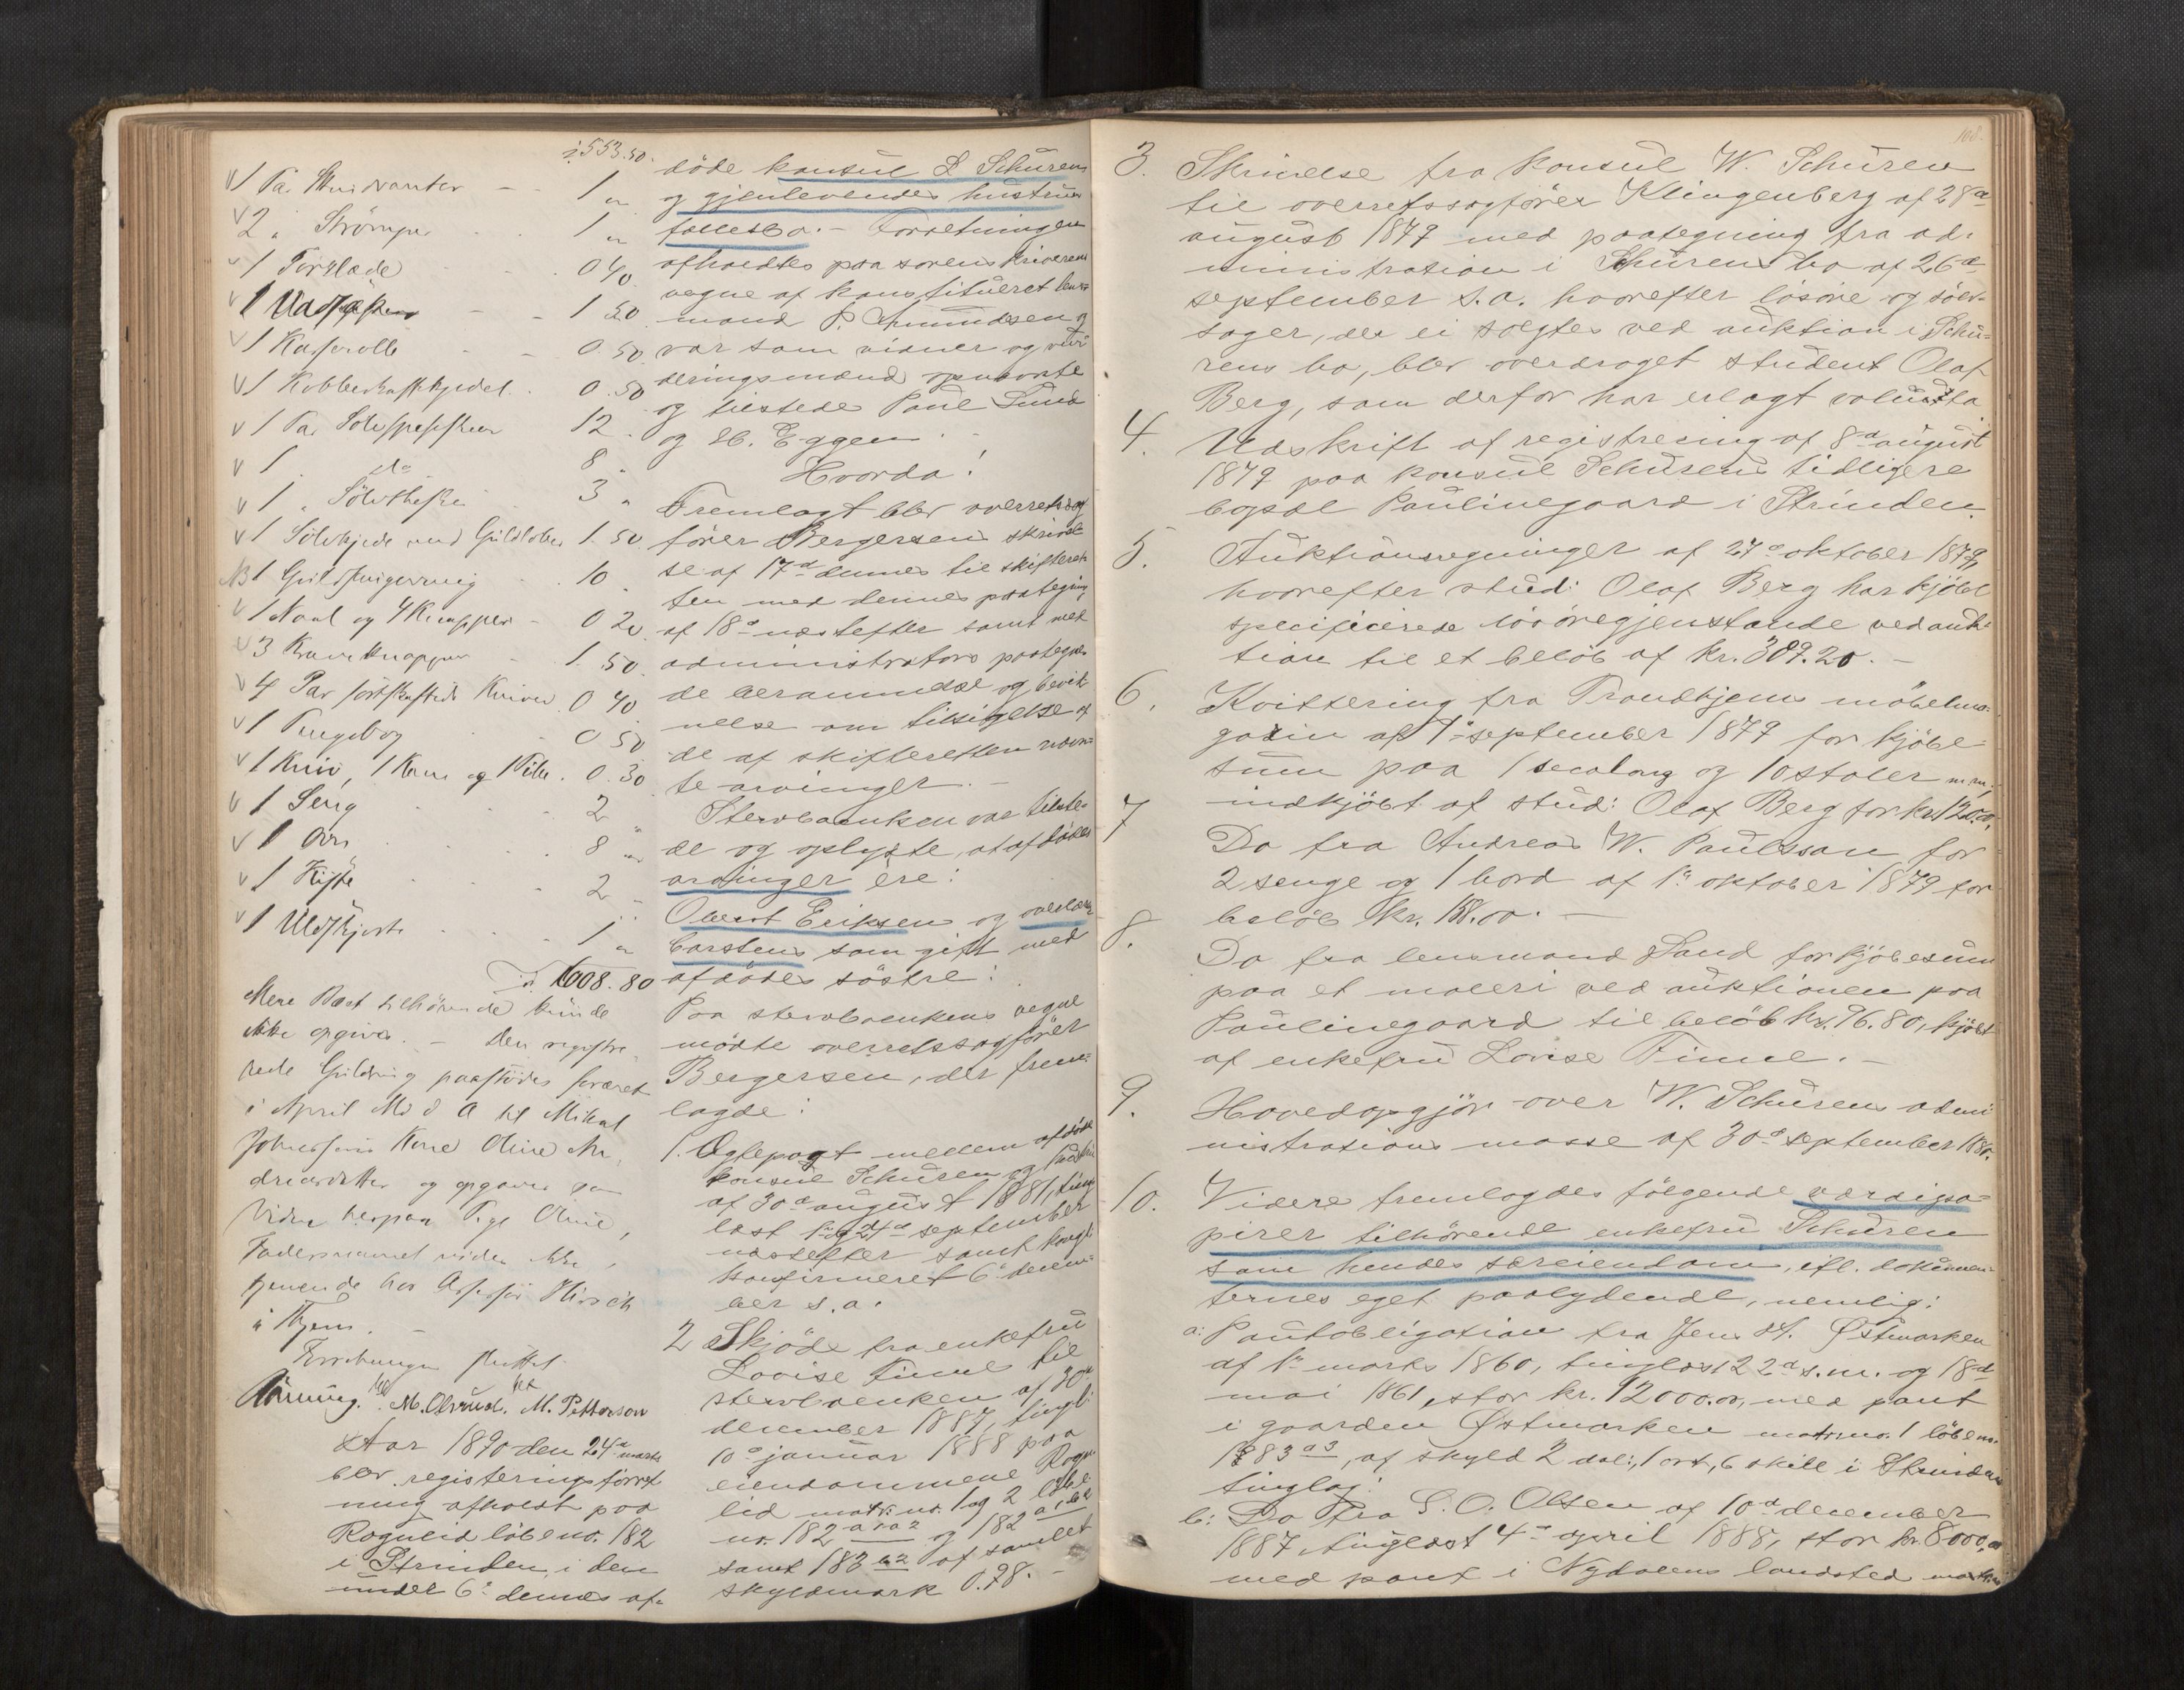 553.50.
1 Par
1
2 " Strömper
1
1 Forklæde
0 40
1
1 50
1 Kasserolle
0. 50
1 Kobberkaffekjedel
0. 50
1 Par Sölvspiseskeer
12
1 do
8
1 " Sölvtheske
3
1 Sölvkjede med
1. 50
NB 1 Guldfingerring
10
1 Naal og 4 Knapper
0 20
3 Kraveknapper
1. 50
4 Par Knive
0 40
1 Pengebog
0 50
1 Kniv, 1 Kam og 1 Pibe
0. 30
1 Seng
2
1 Ovn
8
1 Kiste
2
1
1
608.80
Mere Boet tilhörende kunde
ikke opgives. - Den registre-
rede Guldring paastodes foræret
i April Md d A til Mikal
Kone Oline An-
dreasdatter og opgaves som
Vidne herpaa Pige Oline,
Fadersnavnet vides ikke,
tjenende hos Hirsch
i Thjem. -
Forretningen sluttet.
Rönning. M. Olsrud. M. Petterson
Aar 1890 den 24de marts
blev registeringsforret-
ning afholdt paa
Rognlid löbeno. 182
i Strinden i den
under 6te dennes af-
döde konsul L Schürens
og gjenlevendes hustrus
fællesbo. - Forretningen
afholdtes paa sorenskriverens
vegne af konstitueret lens-
mand P. Amundsen og
var som vidner og vur-
deringsmænd opnævnte
og tilstede Paul Lund
og H. Eggen.
Hvorda!
Fremlagt blev overretssag-
förer Bergersens skrivel-
se af 17de dennes til skifteret-
ten med dennes paategning
af 18de næstefter samt med
administrators paategne-
de berammelse og bevid-
nelse om tilsigelse af
de af skifteretten nævn-
te arvinger. -
Stervboenken var tilste-
de og oplyste, at afdödes
arvinger ere:
Obesrt Eriksen og overlærer
Carstens som gift med
afdödes söstre:
Paa stervboenkens vegne
mödte overretssagförer
Bergersen, der frem-
lagde:
1. Ægtepagt mellem afdöde
konsul Schüren og
af 30de august 1881, ting-
læst 1te og 24de september
næstefter samt kongl.
konfirmeret 6te decem-
ber s.a.
2 Skjöde fra enkefru
Lovise Finne til
stervboenken af 30de
december 1887, tingl.
10de januar 1888 paa
eiendommene Rogn-
lid matr: no. 1 og 2 löbe-
no. 182 a og 182
samt 183 b2 af samlet
skyldmark 0.98. -
108.
3. Skrivelse fra konsul W. Schüren
til overretssagförer Klingenberg af 28de
august 1879 med paategning fra ad-
ministration i Schürens bo af 26de
september s.a. hvorefter lösöre og sölv-
sager, der ei solgtes ved auktion i Schü-
rens bo, blev overdraget student Olaf
Berg, som derfor har erlagt valuta
4. Udskrift af registrering af 8de august
1879 paa konsul Schürens tidligere
bopæl Paulinegaard i Strinden.
5. Auktionsregninger af 27de oktober 1879,
hvorefter stud: Olaf Berg har kjöbt
specificerede lösöregjenstande ved auk-
tion til et belöb af kr. 309.20. -
6. Kvittering fra Trondhjems möbelma-
gazin af 1te september 1879 for kjöbe-
sum paa 1 og 10 stoler m.m.
indkjöbt af stud: Olaf Berg for kr. 120.00.
7 Do fra Andreas W. Paulssan for
2 senge og 1 bord af 1te oktober 1879 for
belöb kr. 158.00. -
8. Do fra lensmand Sand for kjöbesum
paa et maleri ved auktionen paa
Paulinegaard til belöb kr. 96.80, kjöbt
af enkefru Lovise Finne. -
9. Hovedopgjör over W. Schürens admi-
nistrations masse af 30te september 1880.
10. Videre fremlagdes fölgende værdipa-
pirer tilhörende enkefru Schüren
som hendes særeiendom, ifl. dokumen-
ternes eget paalydende, nemlig:
a: Pantobligation fra Jens H. Østmarken
af 1te marts 1860, tinglæst 22de s.m. og 18de
mai 1861, stor kr. 12000.00, med pant
i gaarden Østmarken matr: no. 1 löbeno.
183 a3, af skyld 2 dal:, 1 ort, 6 skill i Strindens
tinglag:
b: Do fra S. O. Olsen af 10de december
1887, tinglæst 4de april 1888, stor kr. 8000,00
med pant i Nydalens landsted matr: no